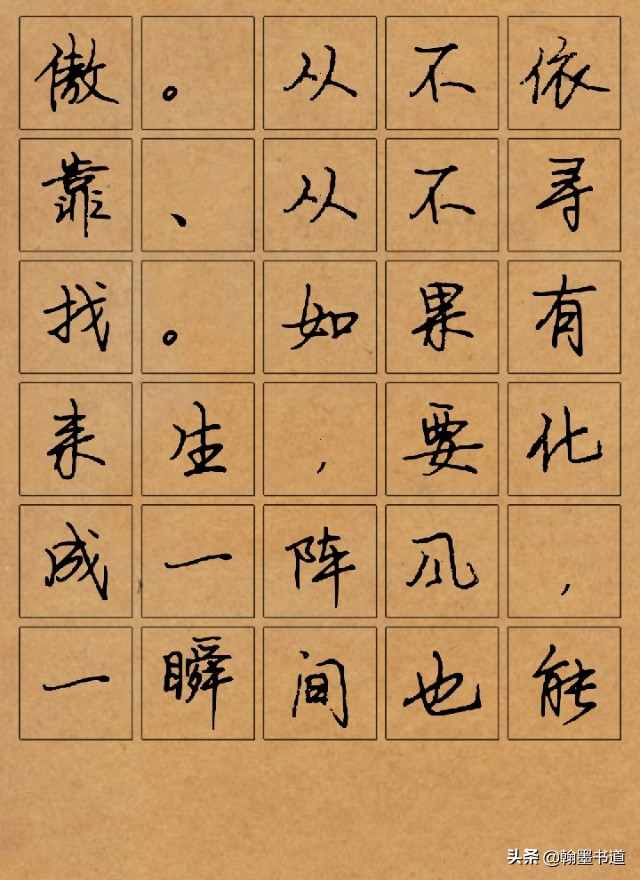 傲。从不依
靠、从不寻
找。如果有
来生，要化
成一阵风，
一瞬间也能
头条 @翰墨书道